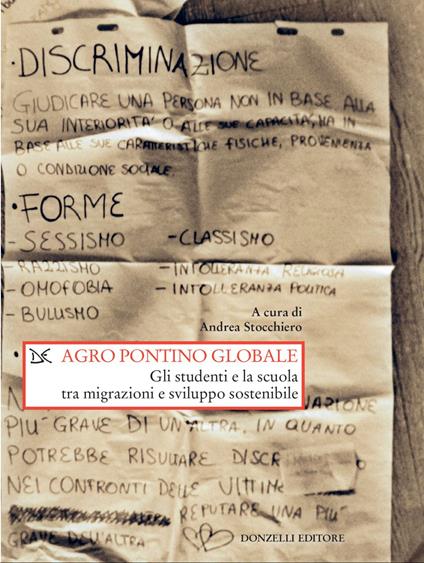 • DISCRIMINAZIONE
GIUDICARE UNA PERSONA NON IN BASE ALLA
SUA INTERIORITA' O ALLE SUE CAPACITA', MA IN
BASE ALLE SUE CARATTERISTICHE FISICHE, PROVENIENZA
O CONDIZIONE SOCIALE.
• FORME
- SESSISMO - CLASSISMO
- RAZZISMO - INTOLLERANZA RELIGIOSA
- OMOFOBIA - INTOLLERANZA POLITICA
- BULLISMO
A cura di
Andrea Stocchiero
AGRO PONTINO GLOBALE
Gli studenti e la scuola
tra migrazioni e sviluppo sostenibile
PIU' GRAVE DI UN'ALTRA, IN QUANTO
POTREBBE RISULTARE
NEI CONFRONTI DELLE VITTIME
REPUTARE UNA PIU'
GRAVE DELL'ALTRA
DONZELLI EDITORE